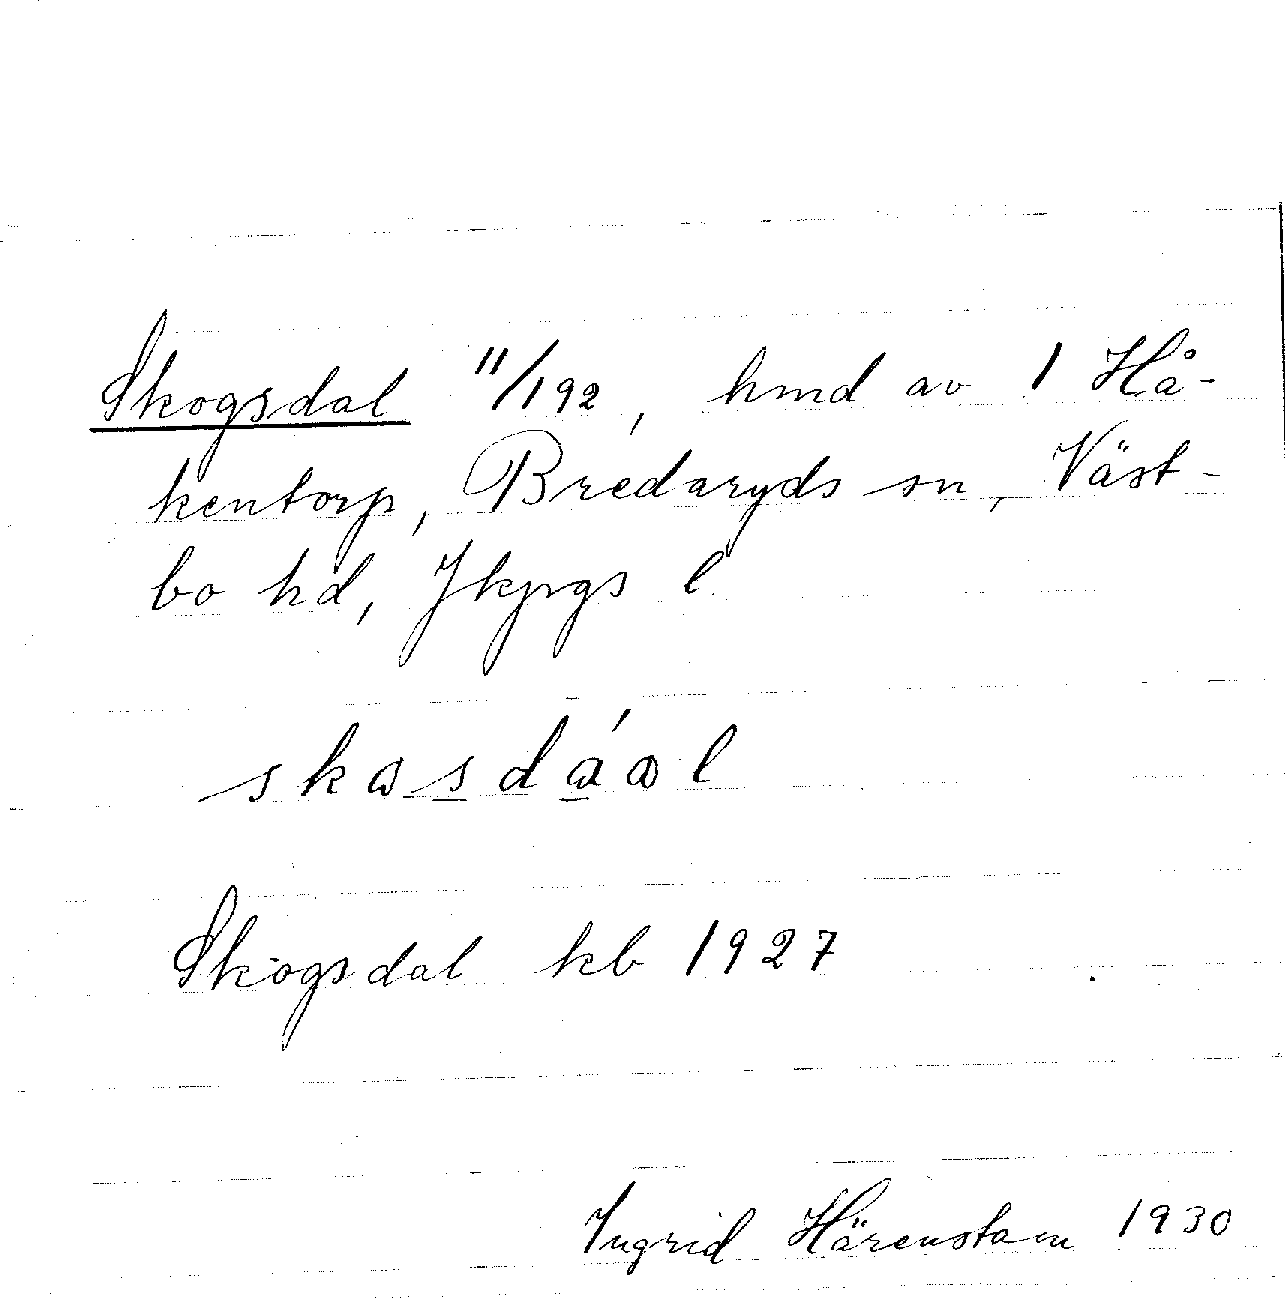 Skogsdal 11/192, hmd av 1 Hå-
kentorp, Bredaryds sn, Väst-
bo hd, Jkpgs l
Skogsdal kb 1927
Ingrid Härenstam 1930